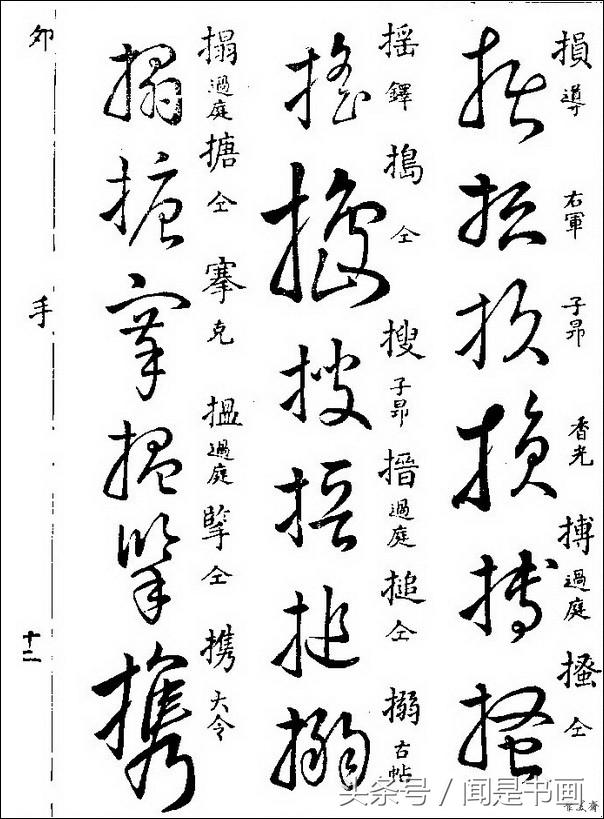 損 導
右軍
子昂
香光
搏 過庭
搔 仝
搖 鐸
搗 仝
搜 子昂
搢 過庭
搥 仝
搦 古帖
搨 過庭
搪 仝
搴 克
搵 過庭
掔 仝
携 大令
卯
手
十二
头条号 / 闻是书画